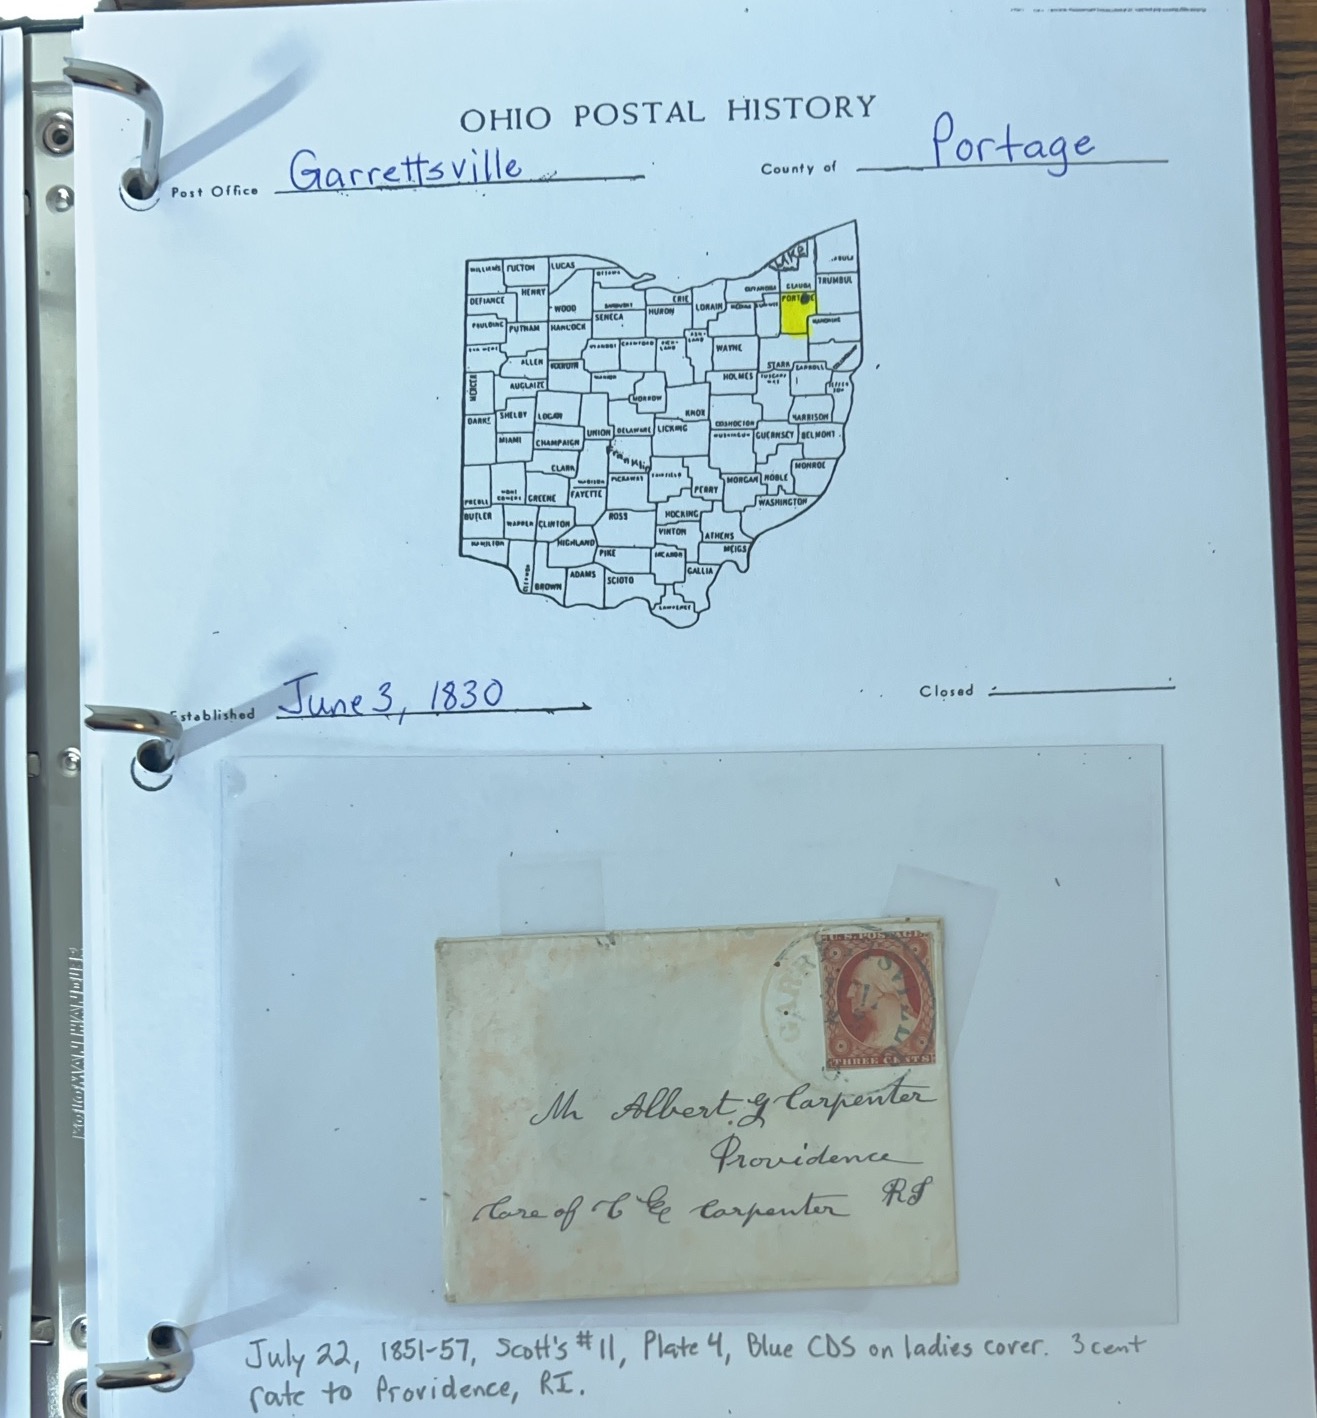 OHIO POSTAL HISTORY
Post Office Garrettsville County of Portage
LAKE
WILLIAMS FULTON LUCAS OTTAWA
TRUMBUL
DEFIANCE HENRY WOOD SANDUSKY ERIE LORAIN CUYAHOGA GEAUGA
PORTAGE
PAULDING PUTNAM HANCOCK SENECA HURON MEDINA SUMMIT MAHONING
ALLEN WAYNE STARK CARROLL COLUMBIANA
MERCER AUGLAIZE MORROW HOLMES
DARKE SHELBY LOGAN KNOX COSHOCTON HARRISON
MIAMI CHAMPAIGN UNION DELAWARE LICKING MUSKINGUM GUERNSEY BELMONT
CLARK Franklin MONROE
PREBLE GREENE MADISON FAYETTE PICKAWAY FAIRFIELD PERRY MORGAN NOBLE
BUTLER WARREN CLINTON ROSS HOCKING WASHINGTON
HAMILTON HIGHLAND PIKE VINTON ATHENS
JACKSON MEIGS
BROWN ADAMS SCIOTO GALLIA
LAWRENCE
Established June 3, 1830 Closed
U.S. POSTAGE
THREE CENTS
Mr Albert G Carpenter
Providence
RI
Care of C E Carpenter
July 22, 1851-57, Scott's #11, Plate 4, Blue CDS on ladies cover. 3 cent
rate to Providence, RI.